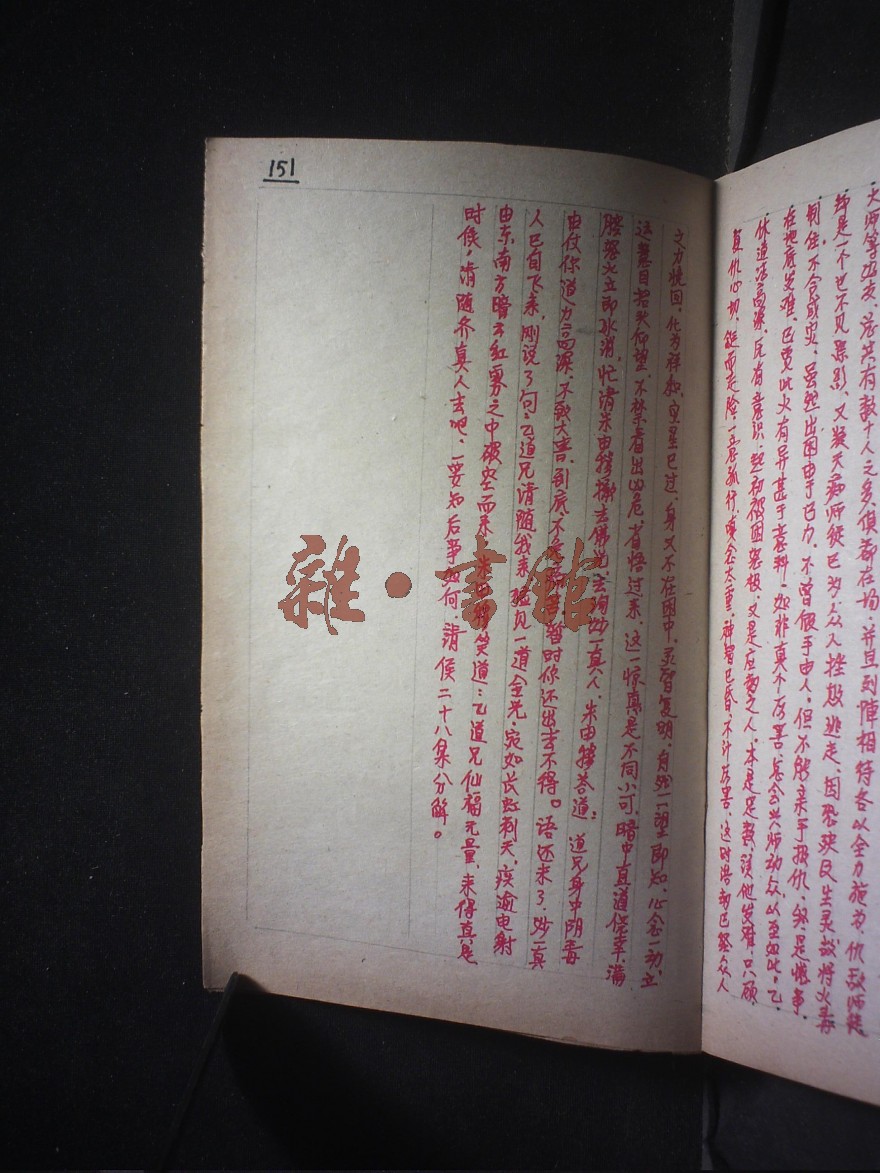 大师等至交，总共有数十人之多，俱都在场，并且到阵相待各以全力施为，仇敌师徒
却是一个也不见踪影，又疑天痴师徒已为众人挫败逃走，因恐殃民生灵故将火毒
制住，不令成灾，虽然出困由于己力，不曾假手由人，但不能亲手报仇，终是恨事，
在地底发难，已觉此火有异甚于意料，如非真个厉害，怎会兴师动众，以至如此，乙
休道法高深，氏有意识，起初被困怒极，又是应劫之人，本是足数，该他发难，只顾
复仇心切，铤而走险，一意孤行，嗔念太重，神智已昏，不计厉害，这时浩劫已经众人
之力挽回，化为祥和，灾星已过，身又不在困中，灵智复明，自然一望即知，心念一动，立
运慧目抬头仰望，不禁看出凶危，省悟过来，这一惊真是不同小可，暗中直道侥幸，满
腔怒火立即冰消，忙请朱由穆撤去佛光去询妙一真人，朱由穆答道：道兄身中阴毒
由仗你道力高深，不致大害，到底不暂时你还出去不得。语还未了，妙一真
人已自飞来，刚说了句：乙道兄请随我来，猛见一道金光，宛如长虹刺天，疾逾电射
由东南方暗赤红雾之中破空而来，朱由穆笑道：乙道兄仙福无量，来得真是
时候，请随齐真人去吧，要知后事如何，请侯二十八集分解。
151
雜·書館